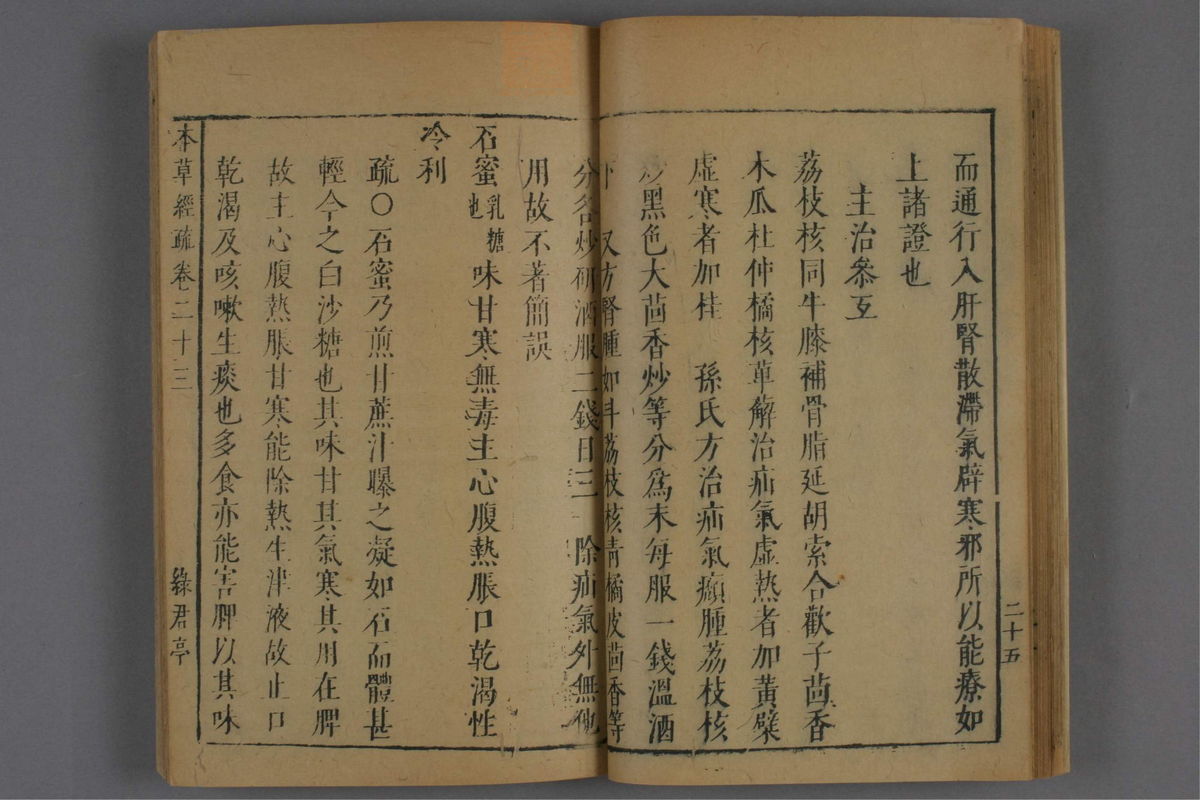 而通行入肝腎散滯氣辟寒邪所以能療如
上諸證也
主治參互
荔枝核同牛膝補骨脂延胡索合歡子茴香
木瓜杜仲橘核萆解治疝氣虛熱者加黃檗
虛寒者加桂 孫氏方治疝氣㿗腫荔枝核
炒黑色大茴香炒等分為末每服一錢溫酒
下 又方腎腫如斗荔枝核青橘皮茴香等
分各炒研酒服二錢日三 除疝氣外無他
用故不著簡誤
石蜜乳糖也味甘寒無毒主心腹熱脹口乾渴性
冷利
疏〇石蜜乃煎甘蔗汁曝之凝如石而體甚
輕今之白沙糖也其味甘其氣寒其用在脾
故主心腹熱脹甘寒能除熱生津液故止口
乾渴及咳嗽生痰也多食亦能害脾以其味
本草經疏卷二十三 綠君亭
二十五